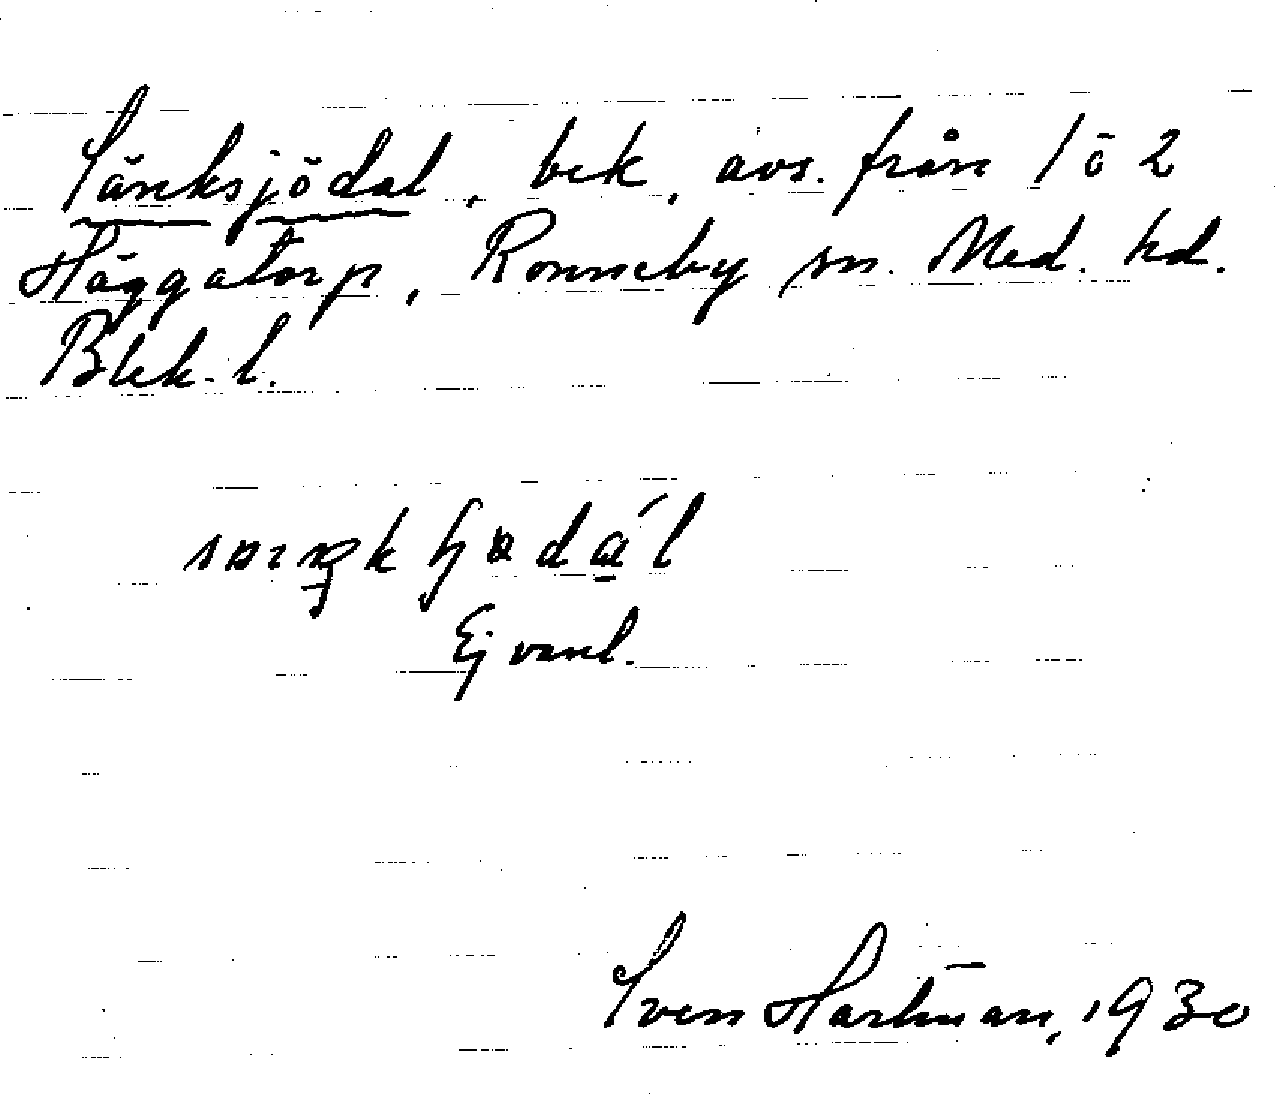 Sänksjödal, bek, avs. från 1 ō 2
Häggatorp, Ronneby sn. Med. hd.
Blek. l.
Ej vanl.
Sven Hartman, 1930